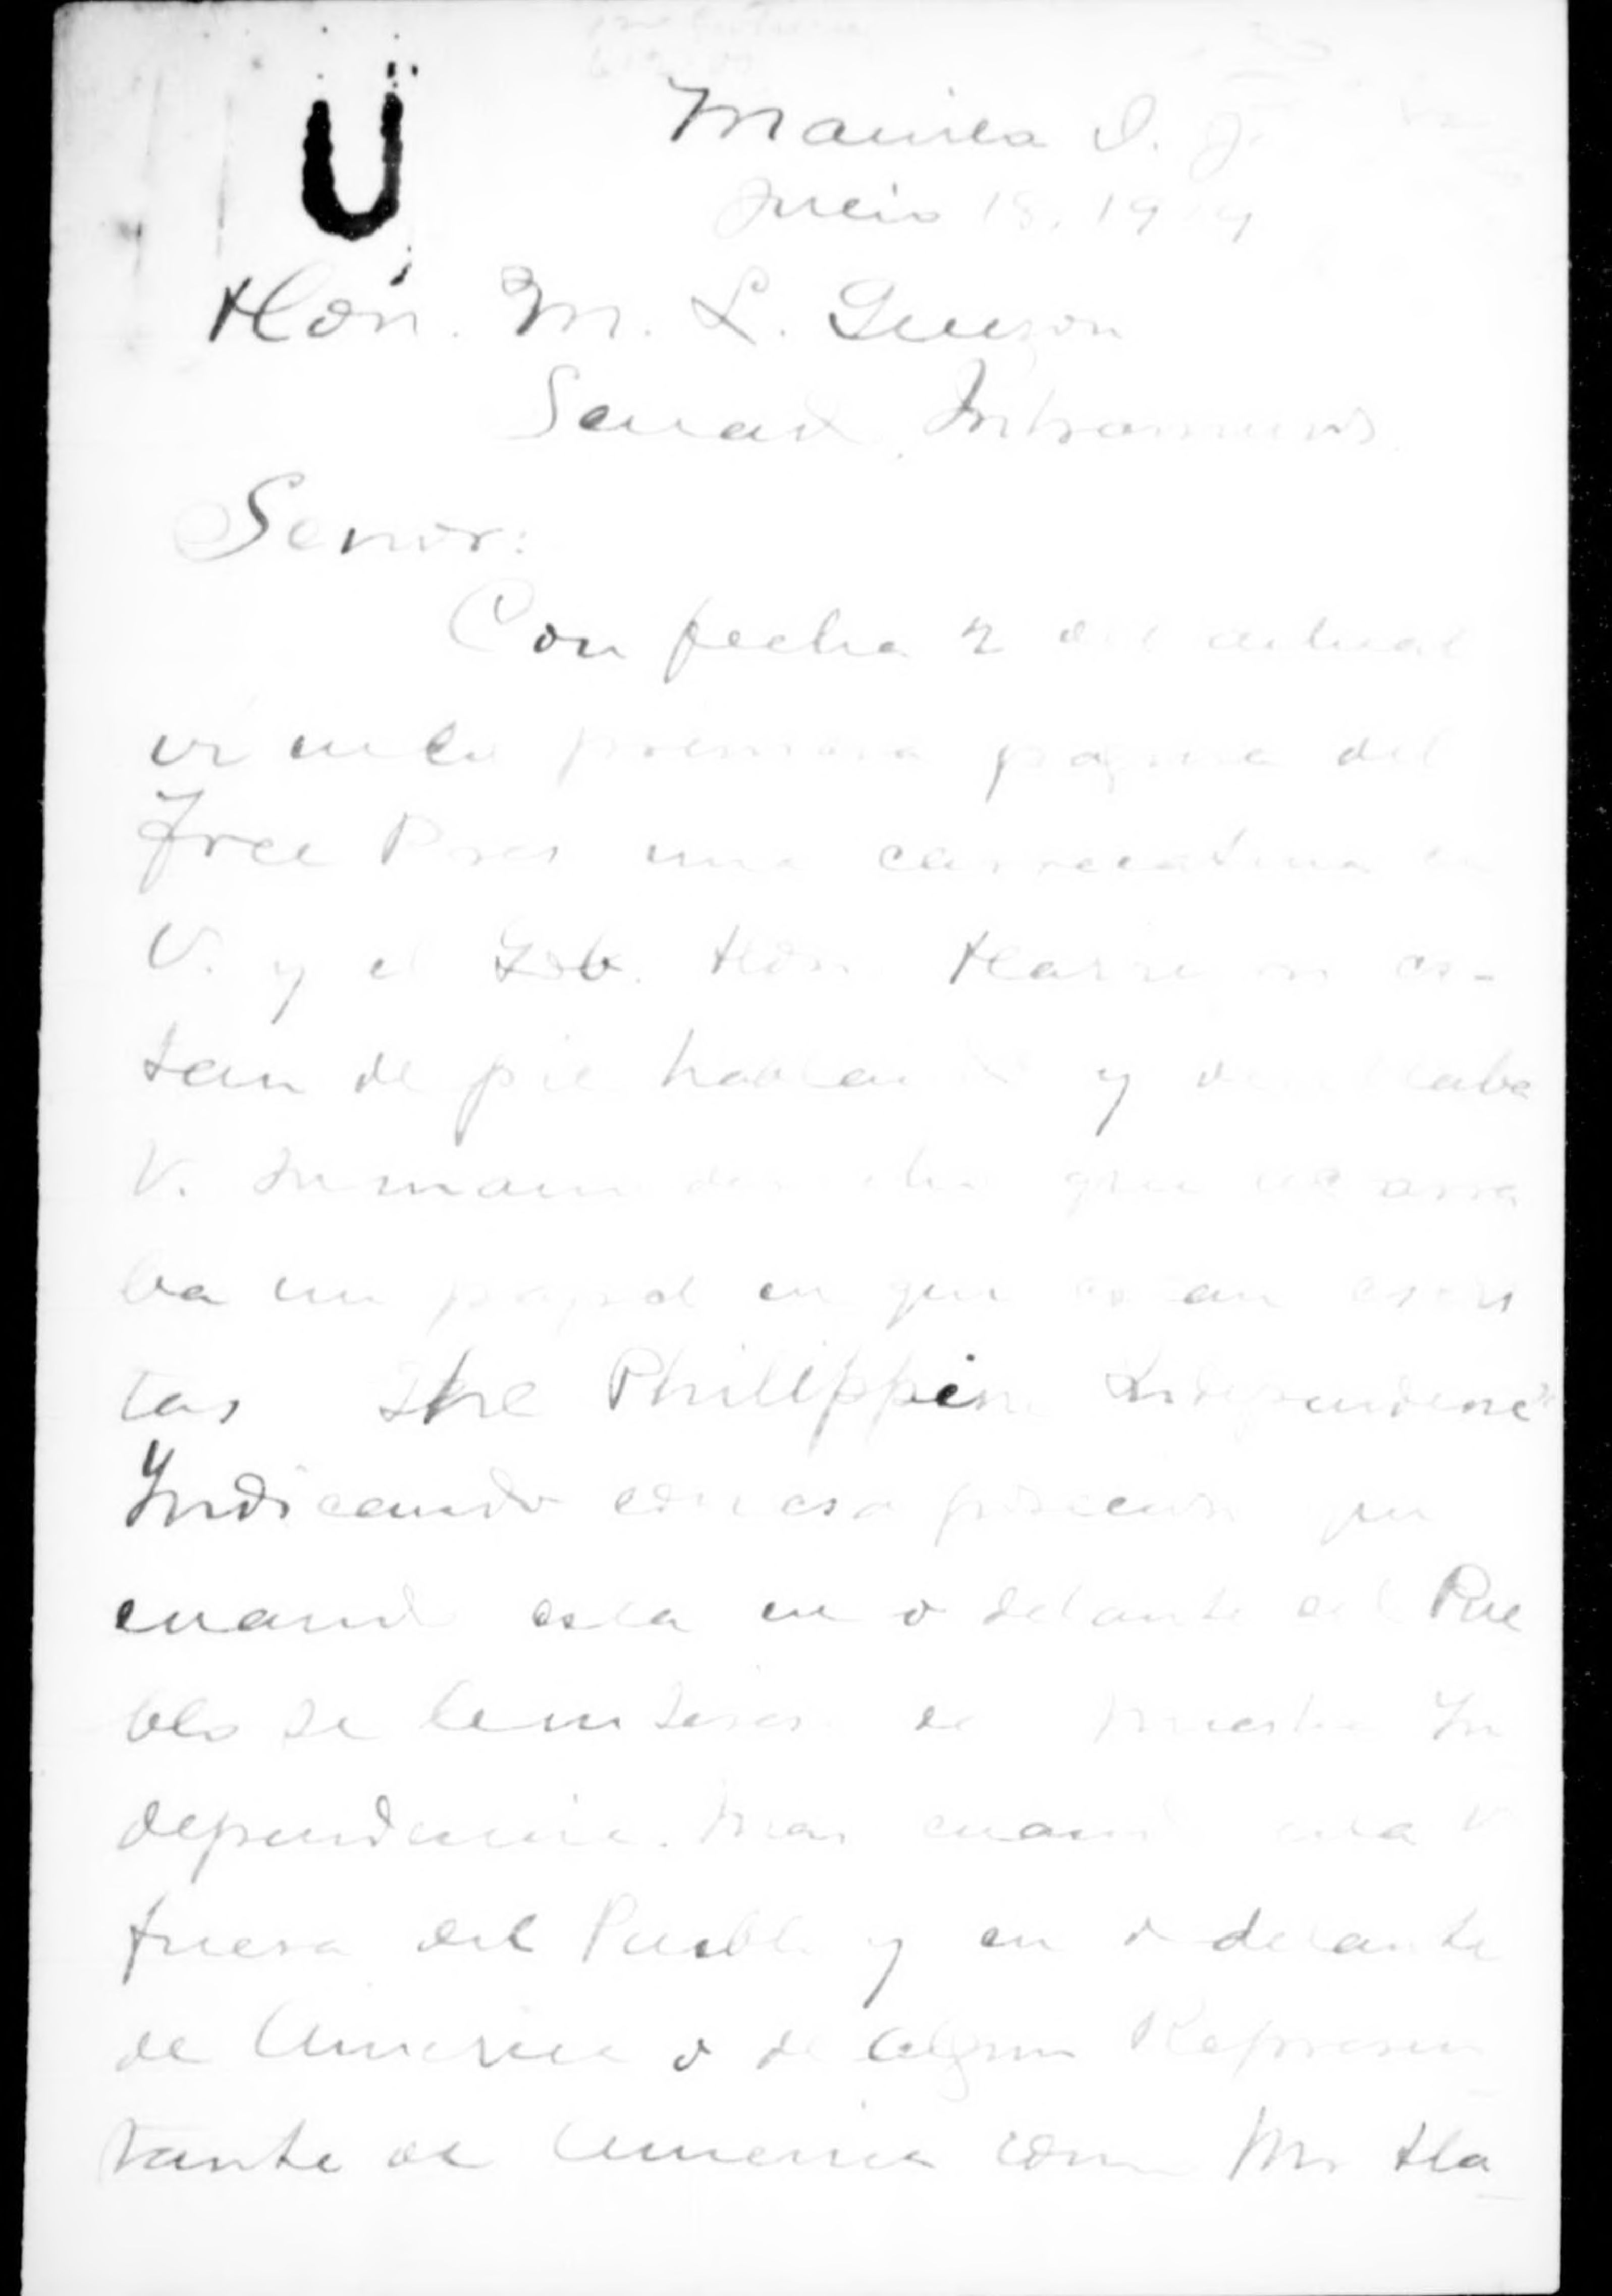 U
Manila I. F.
Julio 18, 1919
Hon. M. L. Quezon
Senado, Intramuros.
Señor:
Con fecha 2 del actual
vi en la primera pagina del
Free Pres una carrecatura
V. y el Gob. Hon Harrison es-
tan de pie hablando y
V. su mano derecha que
ba un papel en que estan escri
tas The Philippine Independence
Yndicando con esa posicion que
cuando esta en o delante del Pue
blo se le interesa nuestra Yn
dependencia. Mas cuando esta V
fuera del Pueblo y en o delante
de America o de algun Represen
tante de America como Mr Ha-